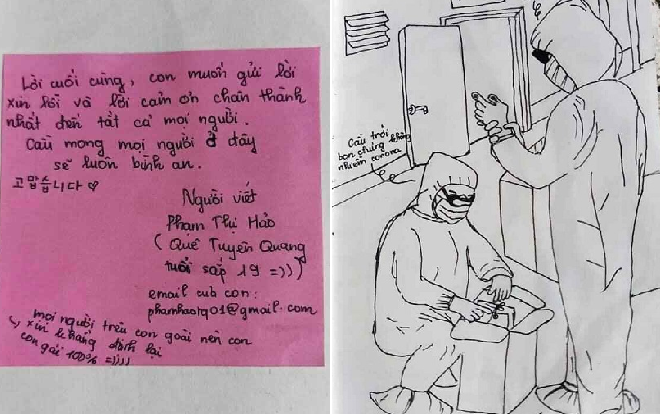 Lời cuối cùng, con muốn gửi lời
xin lỗi và lời cảm ơn chân thành
nhất đến tất cả mọi người.
Cầu mong mọi người ở đây
sẽ luôn bình an.
고맙습니다 ♡
Người viết
Phạm Thị Hảo
( Quê Tuyên Quang
tuổi sắp 19 =)))
email cub con:
phamhaotq01@gmail.com
mọi người trêu con goài nên con
xin khẳng định lại
con gái 100% =))))
Cầu trời
bọn chúng không
nhiễm corona